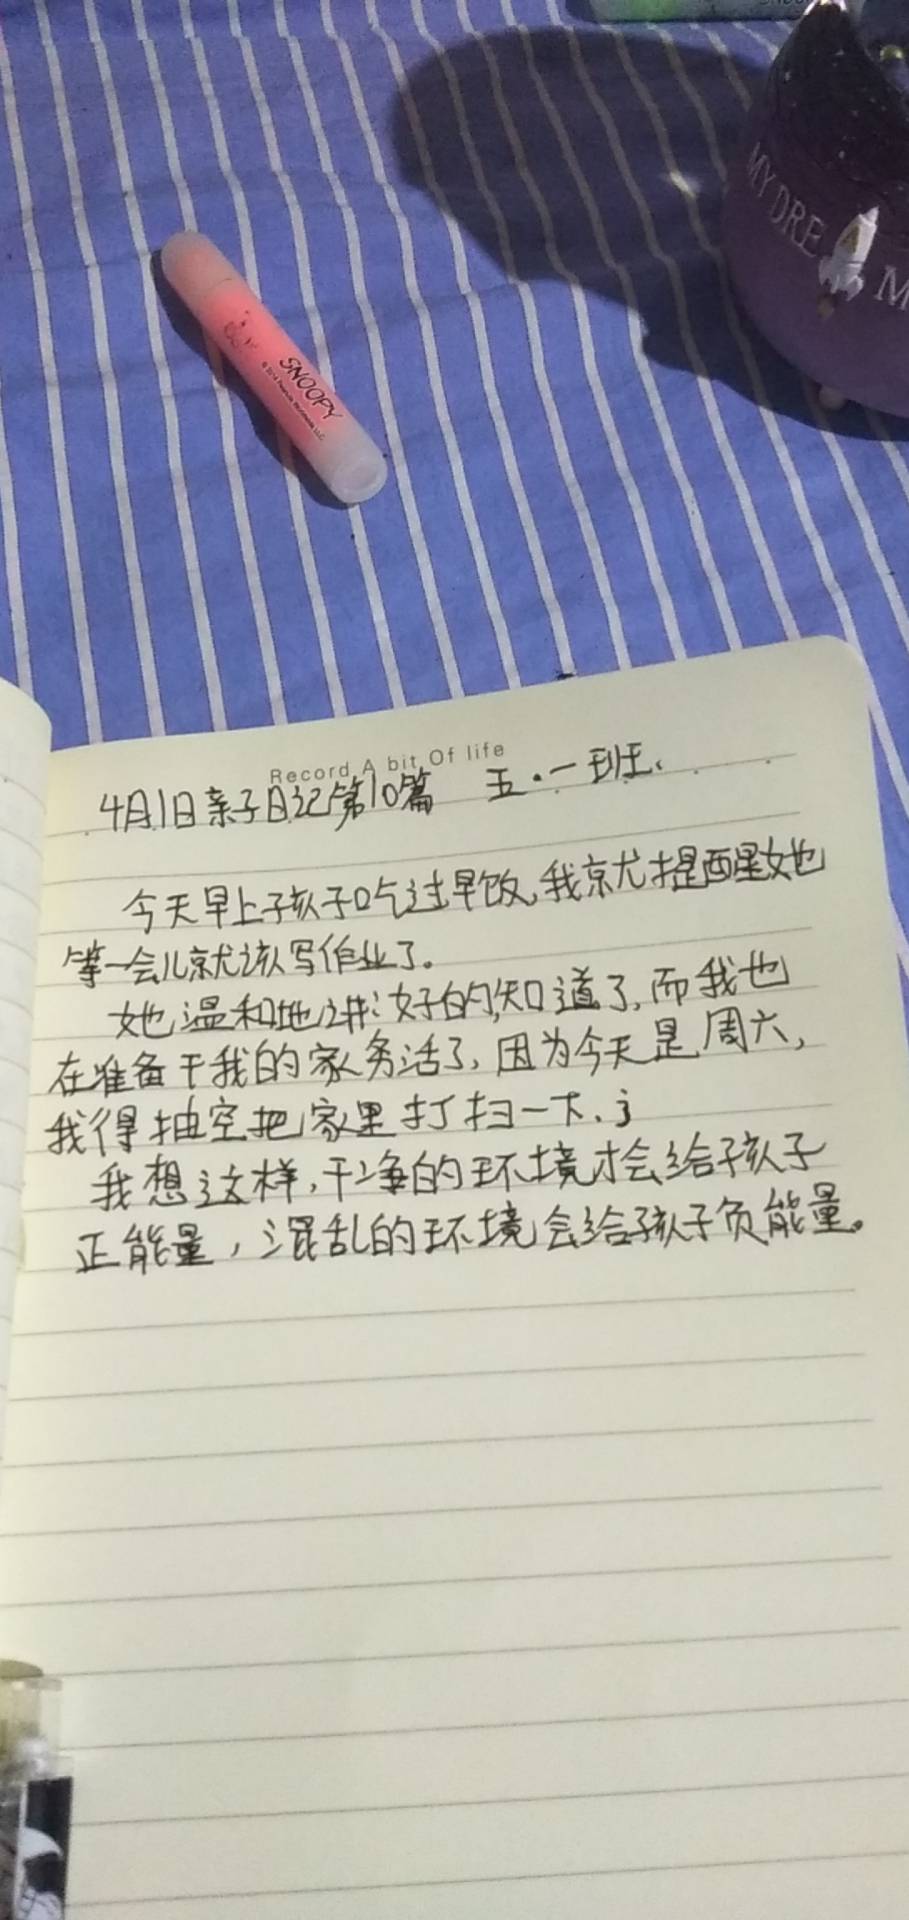 MY DRE
M
SNOOPY
Record A bit Of life
4月1日亲子日记第10篇 五·一班、
今天早上孩子吃过早饭,我就提醒她
等一会儿就该写作业了。
她温和地讲:好的,知道了,而我也
在准备干我的家务活了,因为今天是周六,
我得抽空把家里打扫一下、
我想这样,干净的环境才会给孩子
正能量,混乱的环境会给孩子负能量。